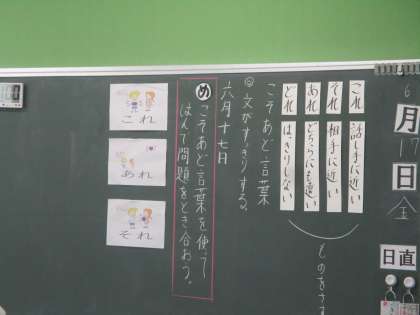 6
月
17
日
金
日直
これ 話し手に近い
それ 相手に近い
あれ どちらにも遠い
どれ はっきりしない
ものをさす
こそあど言葉
文がすっきりする。
六月十七日
め こそあど言葉を使って
はんで問題をとき合おう。
これ
あれ
それ